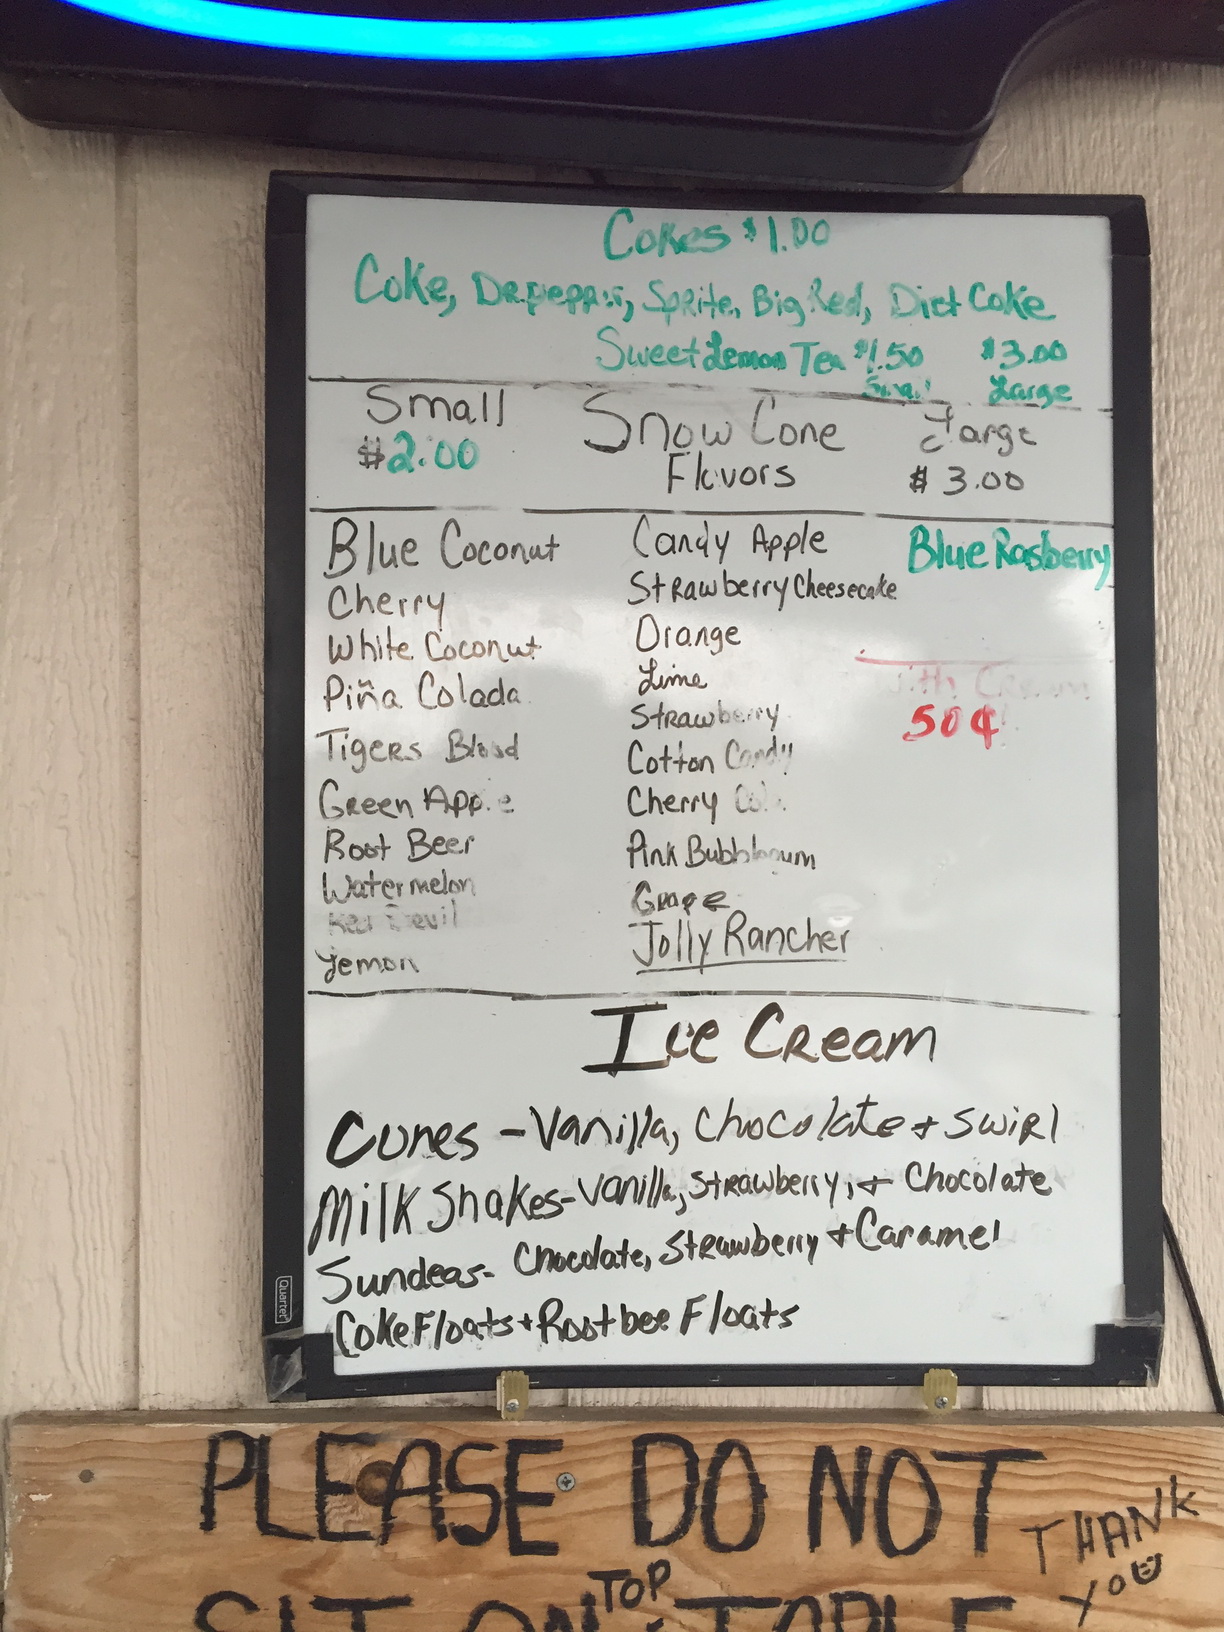 Cokes $1.00
Coke, Dr.pepper, Sprite, Big Red, Diet Coke
Sweet Lemon Tea $1.50 $3.00
Small Large
Small Snow Cone Large
$2.00 Flavors $3.00
Blue Coconut
Cherry
White Coconut
Piña Colada
Tigers Blood
Green Apple
Root Beer
Watermelon
Red Devil
Lemon
Candy Apple
Strawberry Cheesecake
Orange
Lime
Strawberry
Cotton Candy
Cherry Cola
Pink Bubblegum
Grape
Jolly Rancher
Blue Rasberry
With Cream
50¢
Ice Cream
Cones - Vanilla, Chocolate & Swirl
Milk Shakes - Vanilla, Strawberry, & Chocolate
Sundeas - Chocolate, Strawberry & Caramel
Coke Floats & Rootbee Floats
Quartet
PLEASE DO NOT
THANK
YOU
TOP
SIT ON TABLE